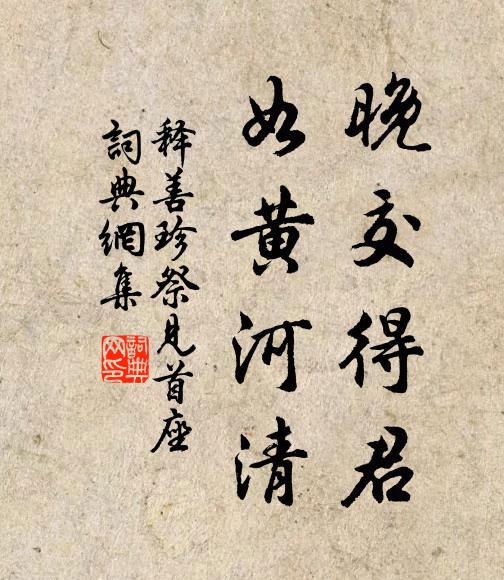 晚交得君
如黄河清
释善珍祭见首座
詞典網集
詞典網印